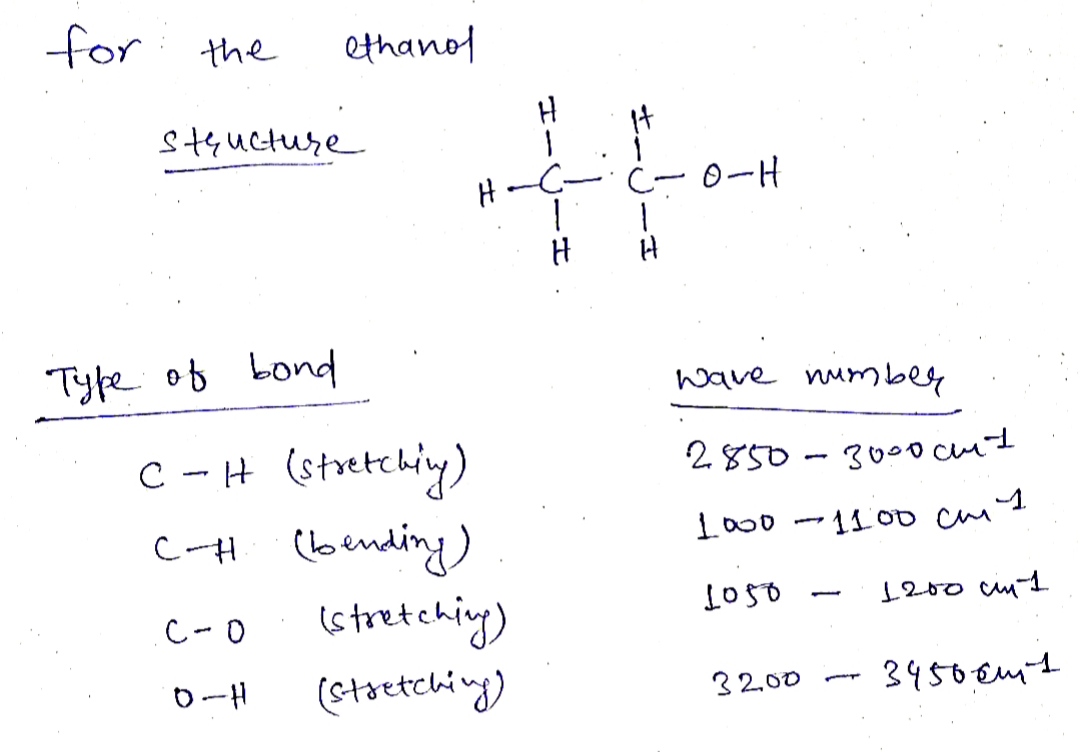 for the ethanol
structure
H H
H-C-C-O-H
H H
Type of bond wave number
C-H (stretching) 2850 - 3000 cm-1
C-H (bending) 1000 - 1100 cm-1
C-O (stretching) 1050 - 1200 cm-1
O-H (stretching) 3200 - 3450 cm-1